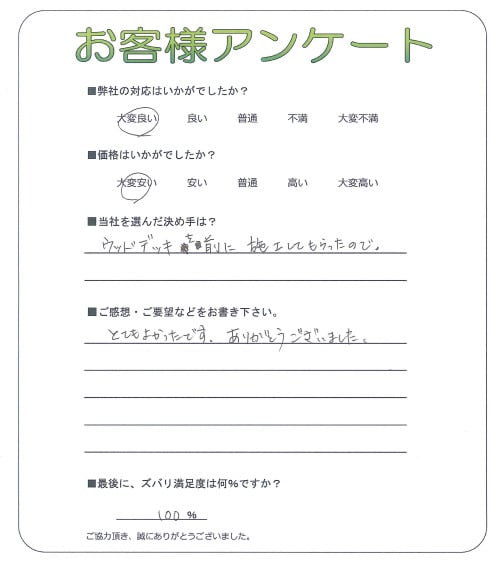 お客様アンケート
■弊社の対応はいかがでしたか？
大変良い 良い 普通 不満 大変不満
■価格はいかがでしたか？
大変安い 安い 普通 高い 大変高い
■当社を選んだ決め手は？
ウッドデッキを前に施工してもらったので。
■ご感想・ご要望などをお書き下さい。
とてもよかったです。ありがとうございました。
■最後に、ズバリ満足度は何％ですか？
100 ％
ご協力頂き、誠にありがとうございました。